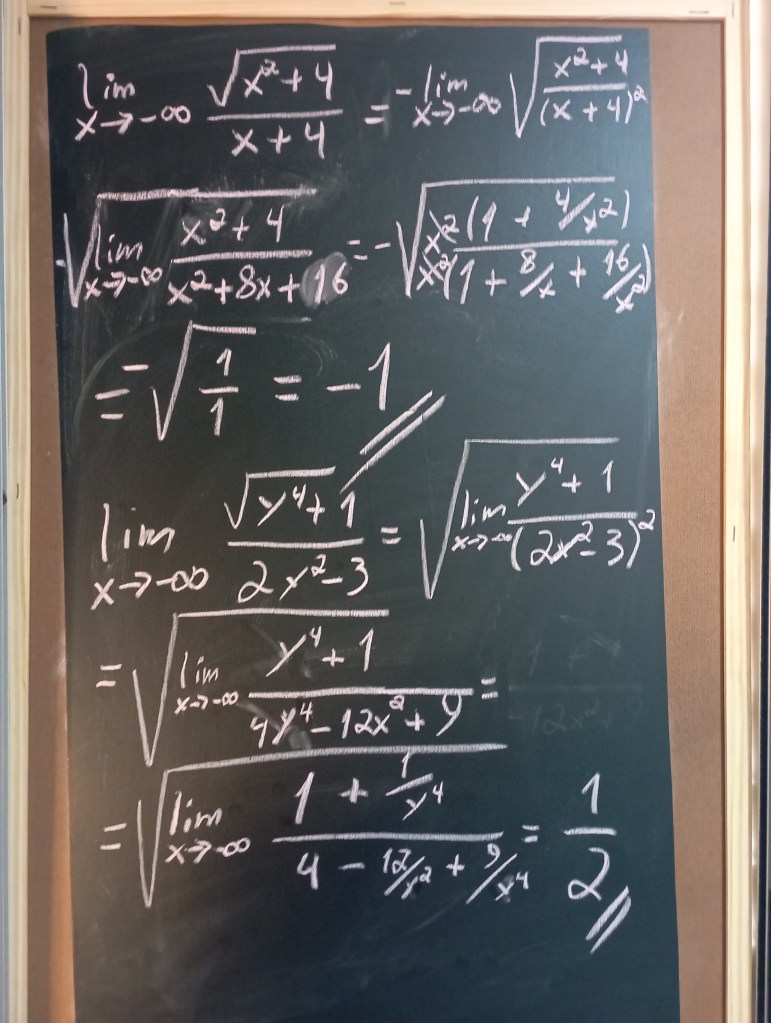 lim x→-∞ √(x²+4) / (x+4) = -lim x→-∞ √((x²+4) / (x+4)²)
-√(lim x→-∞ (x²+4) / (x²+8x+16)) = -√(x²(1+4/x²) / x²(1+8/x+16/x²))
= -√(1/1) = -1
lim x→-∞ √(y⁴+1) / (2x²-3) = √(lim x→-∞ (y⁴+1) / (2x²-3)²)
= √(lim x→-∞ (y⁴+1) / (4y⁴-12x²+9)) =
= √(lim x→-∞ (1+1/y⁴) / (4-12/x²+9/x⁴)) = 1/2